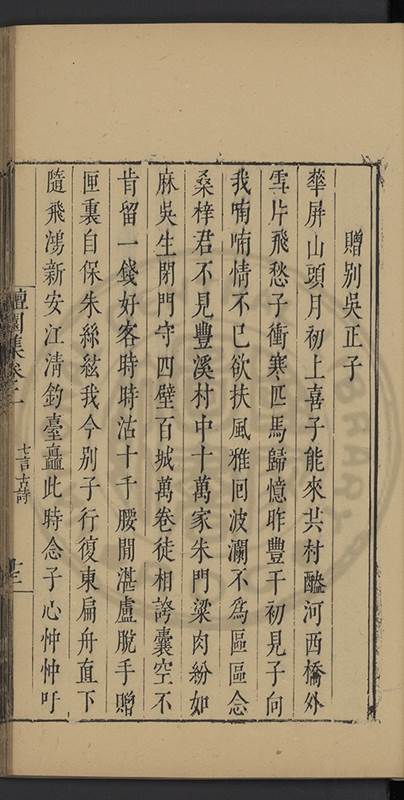 贈别吳正子
華屏山頭月初上喜子能來共村醠河西橋外
雪片飛愁子衝寒匹馬歸憶昨豐干初見子向
我喃喃情不已欲扶風雅回波瀾不為區區念
桑梓君不見豐溪村中十萬家朱門粱肉紛如
麻吳生閉門守四壁百城萬卷徒相誇囊空不
肯留一錢好客時時沽十千腰間湛盧脫手贈
匣裏自保朱絲絃我今别子行復東扁舟直下
隨飛鴻新安江清釣臺矗此時念子心忡忡吁
集卷之二
七言古詩
十三